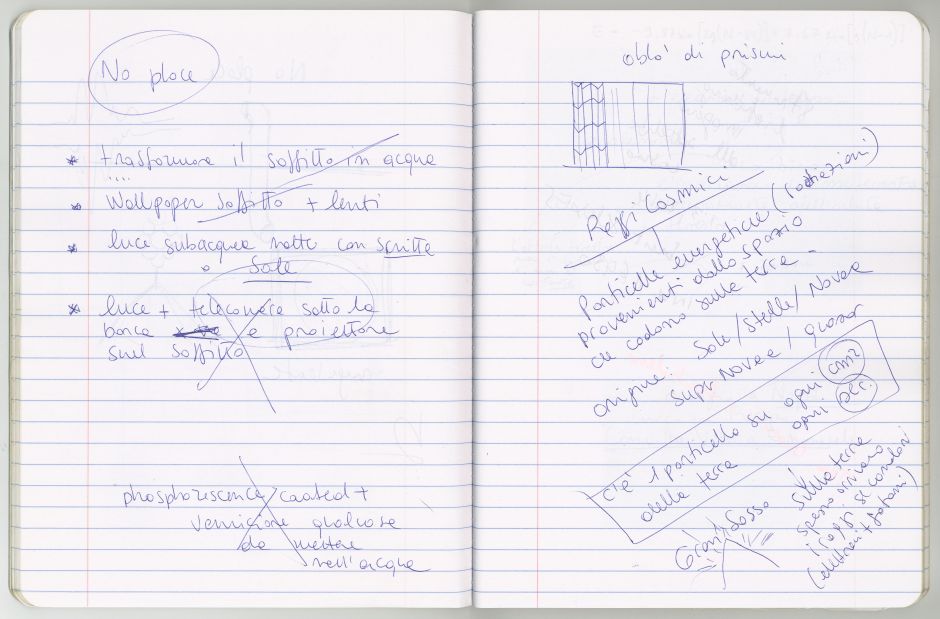 No place
* trasformare il soffitto in acqua
* Wallpaper soffitto + lenti
* luce subacquea notte con scritte
o Sole
* luce + telecamera sotto la
barca e proiettore
sul soffitto
phosphorescence coated +
vernicione qualcosa
da mettere
nell'acqua
oblo' di prismi
Raggi Cosmici
Particelle energetiche (radiazioni)
provenienti dallo spazio
che cadono sulla terra -
origine: Sole/stelle/Novae
Super Novae / quasar
c'è 1 particella su ogni cm2
della terra ogni sec.
Gran Sasso
sulla terra
spesso arrivano
i raggi secondari
(elettroni + fotoni)